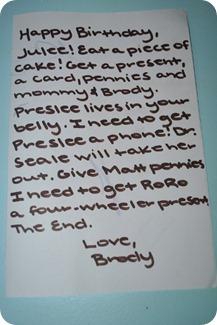 Happy Birthday,
Julee! Eat a piece of
cake! Get a present,
a card, pennies and
mommy & Brody.
Preslee lives in your
belly. I need to get
Preslee a phone! Dr.
Seale will take her
out. Give Matt pennies.
I need to get RoRo
a four-wheeler present.
The End.
Love,
Brody